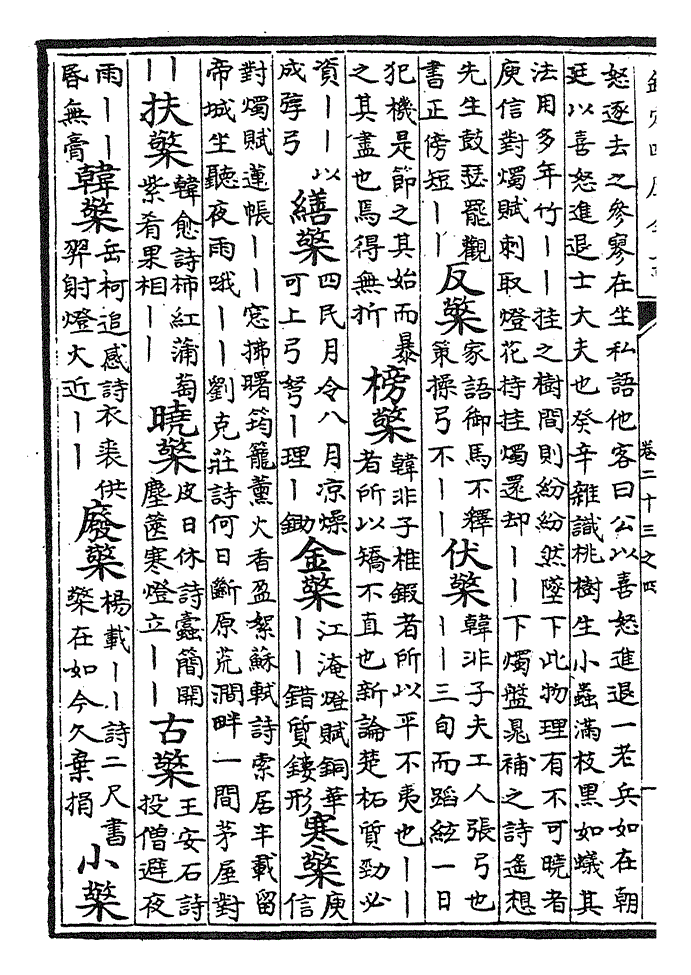 欽定四庫全書
卷二十三之四
一
怒逐去之參寥在坐私語他客曰公以喜怒進退一老兵如在朝
廷以喜怒進退士大夫也癸辛雜識桃樹生小蟲滿枝黑如蟻其
法用多年竹丨丨挂之樹間則紛紛然墜下此物理有不可曉者
庾信對燭賦刺取燈花持挂燭還却丨丨下燭盤晁補之詩遙想
先生鼓瑟罷觀書正傍短丨丨 反檠 家語御馬不釋策操弓不丨丨 伏檠 韓非子夫工人張弓也丨丨三旬而蹈絃一日
犯機是節之其始而暴之其盡也焉得無折 榜檠 韓非子椎鍜者所以平不夷也丨丨者所以矯不直也新論楚柘質勁必
資丨丨以成弴弓 繕檠 四民月令八月凉燥可上弓弩丨理丨鋤 金檠 江淹燈賦銅華丨丨錯質鏤形 寒檠 庾信
對燭賦蓮帳丨丨窓拂曙筠籠薰火香盈絮蘇軾詩索居半載留
帝城坐聽夜雨哦丨丨劉克莊詩何日斷原荒澗畔一間茅屋對
丨丨 扶檠 韓愈詩柿紅蒲萄紫肴果相丨丨 曉檠 皮日休詩蠹簡開塵篋寒燈立丨丨 古檠 王安石詩投僧避夜
雨丨丨昏無膏 韓檠 岳柯追感詩衣裘供羿射燈火近丨丨 廢檠 楊載丨丨詩二尺書檠在如今久棄捐 小檠